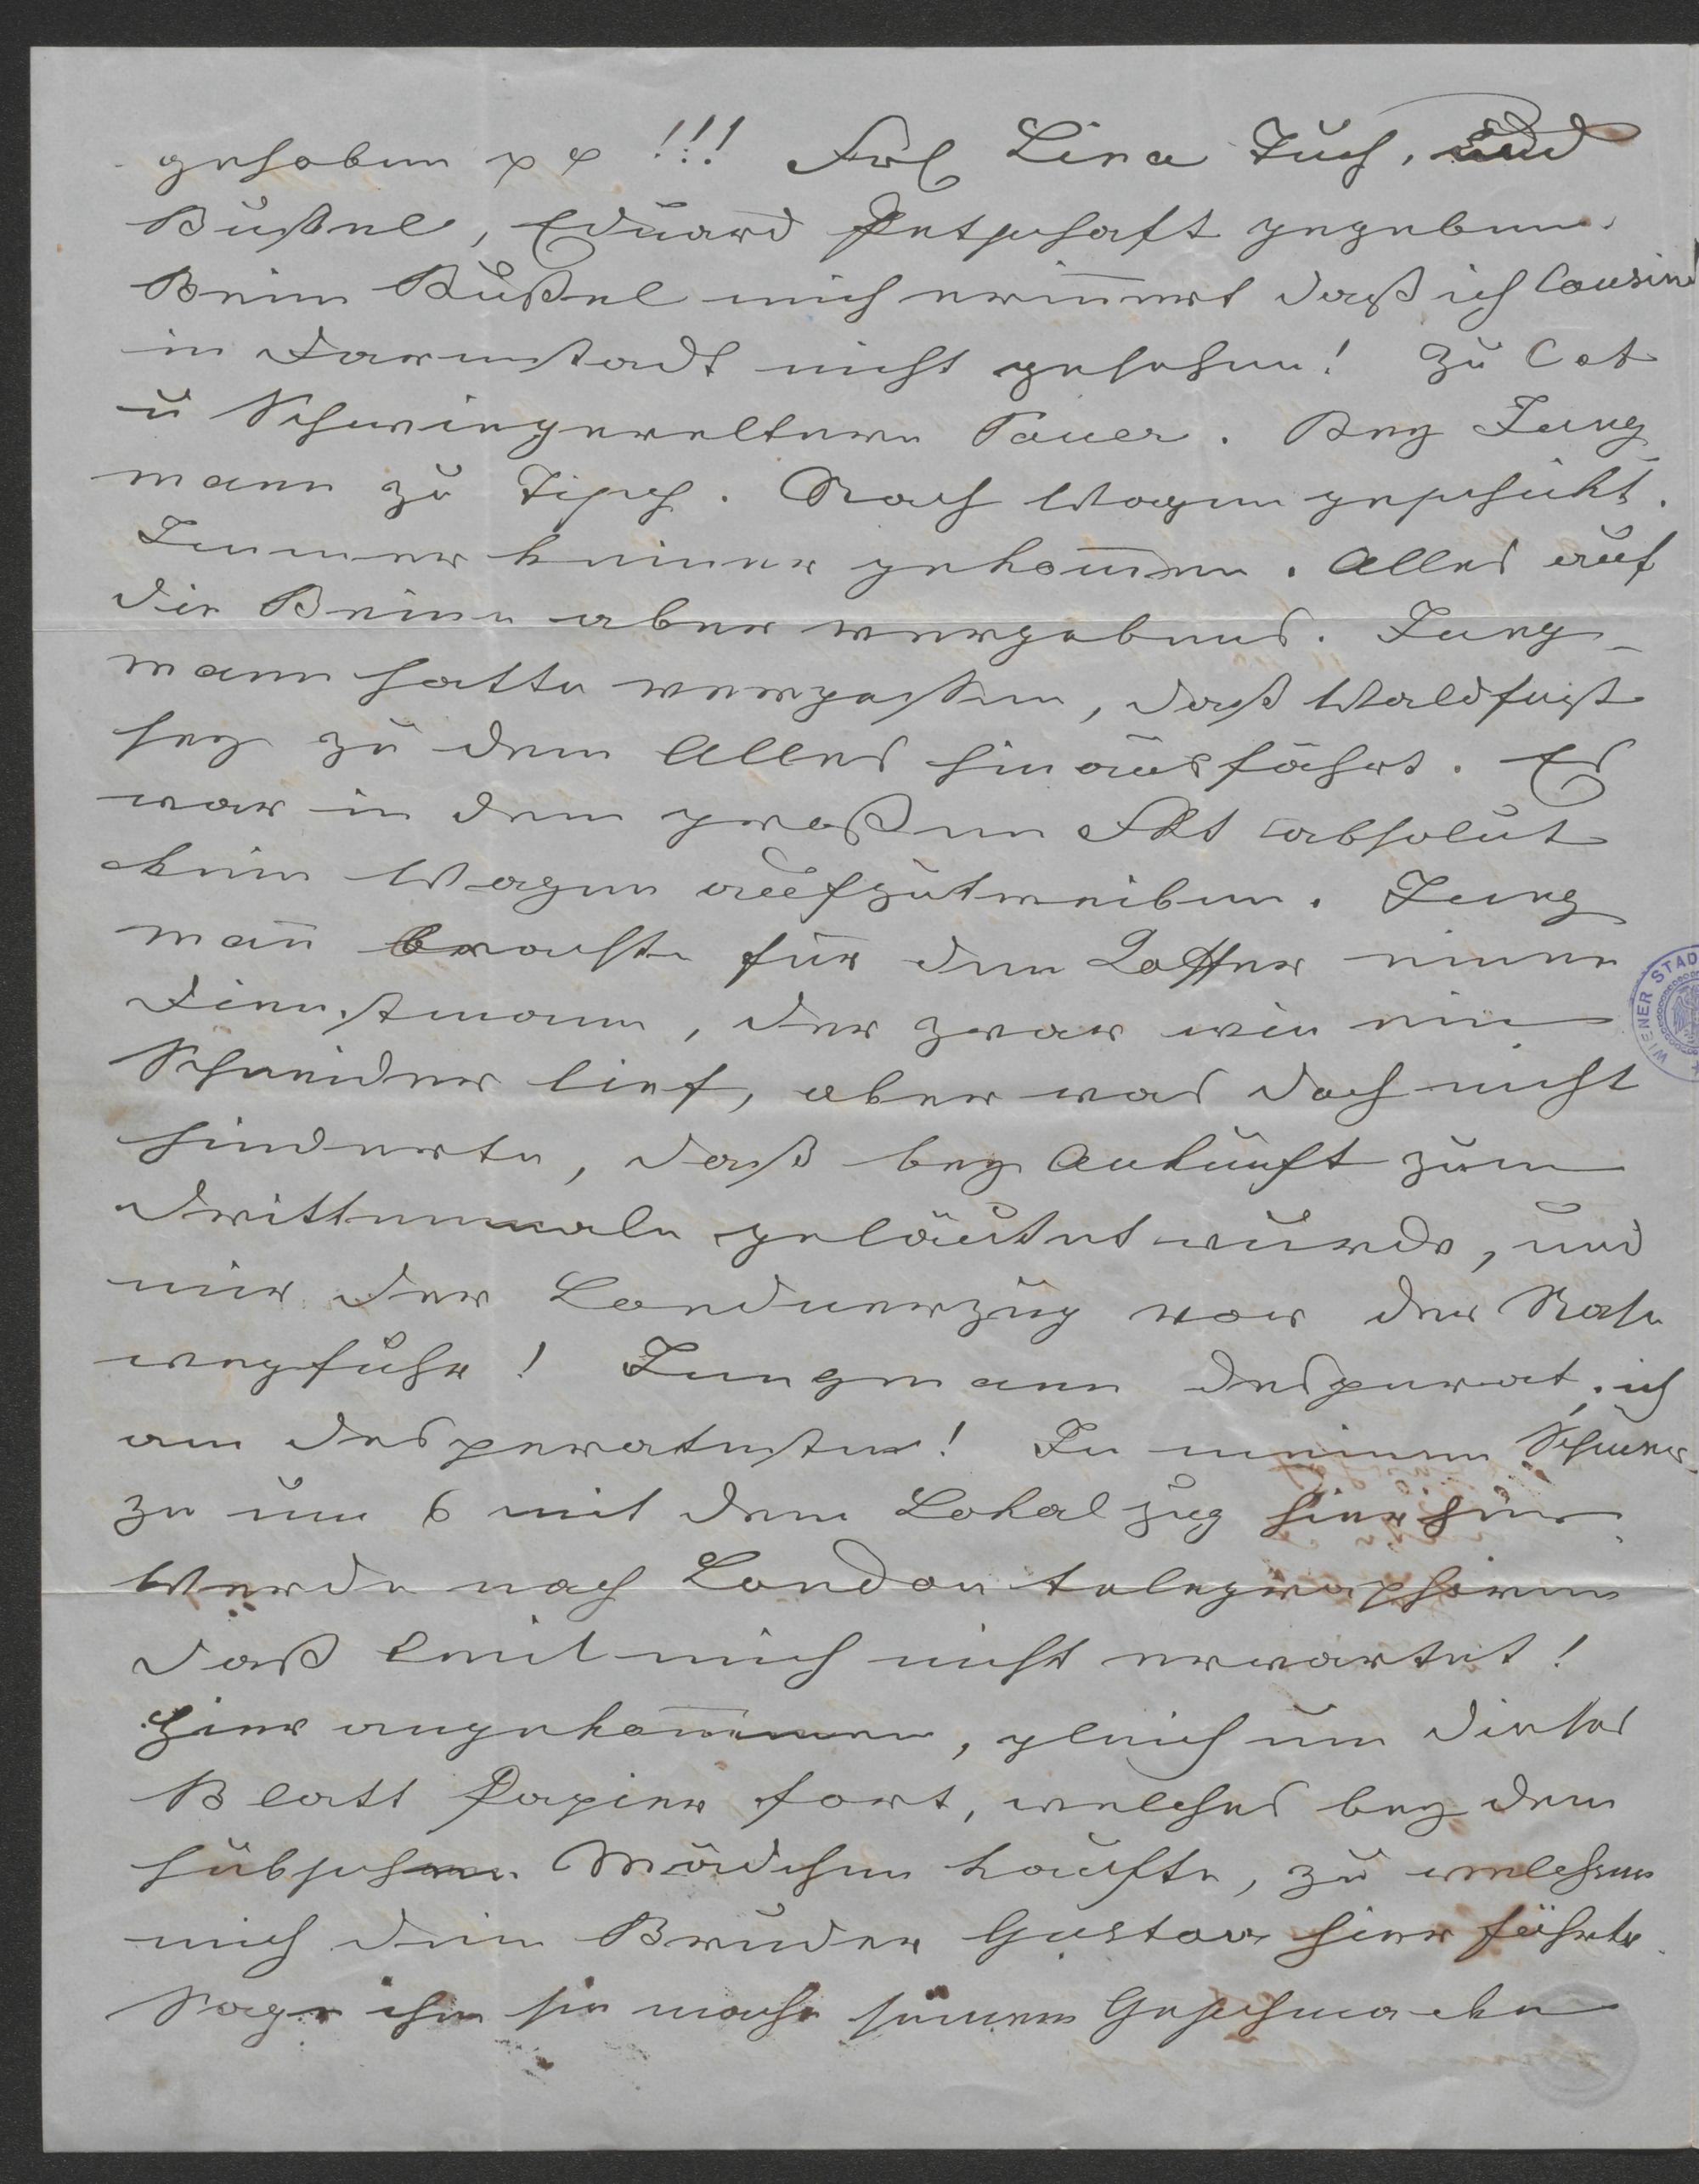 gehoben pp !!! Frl Lina Tuch, und
Bußerl, Eduard Petschaft gegeben.
Beim Bußerl mich erinnert daß ich Cousine
in Darmstadt nicht gesehen! Zu Cot
u Schwiegereltern Pauer. Bey Jung
mann zu Tisch. Nach Wagen geschickt.
Immer keiner gekommen. Alles auf
die Beine aber vergebens. Jung-
mann hatte vergessen, daß Waldfest
sey zu dem Alles hinausfährt. Es
war in dem großen Fkt absolut
kein Wagen aufzutreiben. Jung
mann brachte für den Koffer einen
Dienstmann, der zwar wie ein
Schneider lief, aber was doch nicht
hinderte, daß bey Ankunft zum
drittenmale geläutet wurde, und
mir der Londnerzug vor der Nase
wegfuhr! Jungmann desperat, ich
am desperatesten! In meinem Schmer-
ze um 6 mit dem Lokalzug hierher
Werde nach London telegraphiren
daß Emil mich nicht erwartet!
Hier angekommen, gleich um dieses
Blatt Papier fort, welches bey dem
hübschen Mädchen kaufte, zu welchem
mich dein Bruder Gustav hier führte.
Sage ihm sie mache seinem Geschmacke
WIENER STAD